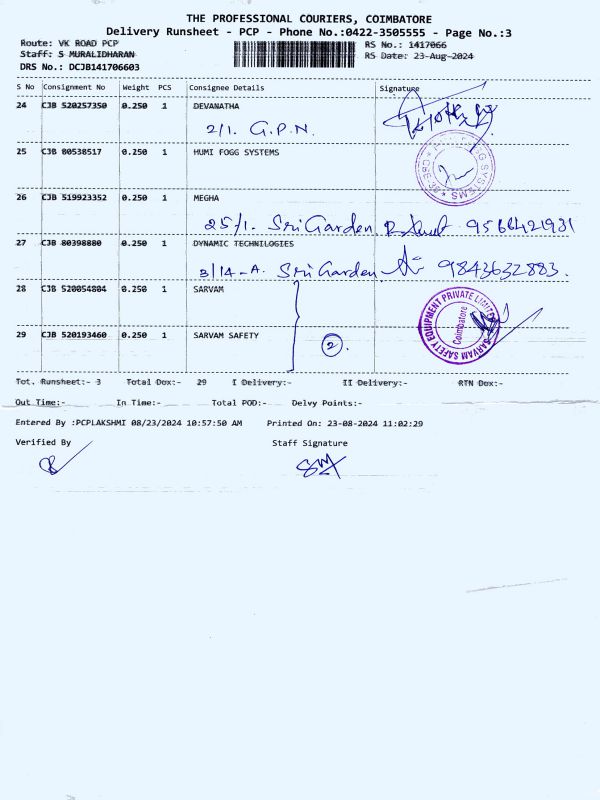 THE PROFESSIONAL COURIERS, COIMBATORE
Delivery Runsheet - PCP - Phone No.:0422-3505555 - Page No.:3
Route: VK ROAD PCP RS No.: 1417066
Staff: S MURALIDHARAN RS Date: 23-Aug-2024
DRS No.: DCJB141706603
S No Consignment No Weight PCS Consignee Details Signature
24 CJB 520257350 0.250 1 DEVANATHA
2/1. G.P.N.
25 CJB 80538517 0.250 1 HUMI FOGG SYSTEMS
26 CJB 519923352 0.250 1 MEGHA
25/1. Sri Garden. 9566421931
27 CJB 80398880 0.250 1 DYNAMIC TECHNILOGIES
3/14-A. Sri Garden. 9843632883.
28 CJB 520054804 0.250 1 SARVAM
SARVAM SAFETY EQUIPMENT PRIVATE LIMITED
Coimbatore
29 CJB 520193460 0.250 1 SARVAM SAFETY
2.
Tot. Runsheet:- 3 Total Dox:- 29 I Delivery:- II Delivery:- RTN Dox:-
Out Time:- In Time:- Total POD:- Delvy Points:-
Entered By :PCPLAKSHMI 08/23/2024 10:57:50 AM Printed On: 23-08-2024 11:02:29
Verified By Staff Signature